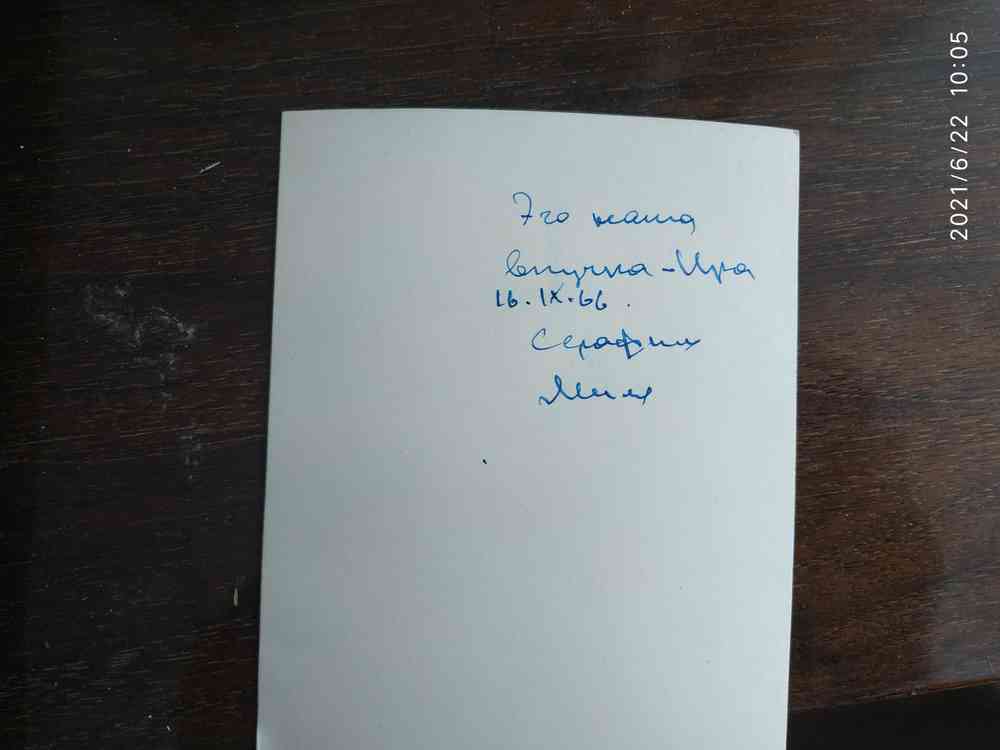 Это наша
внучка - Ира
16.IX.66.
Серафим
2021/6/22 10:05